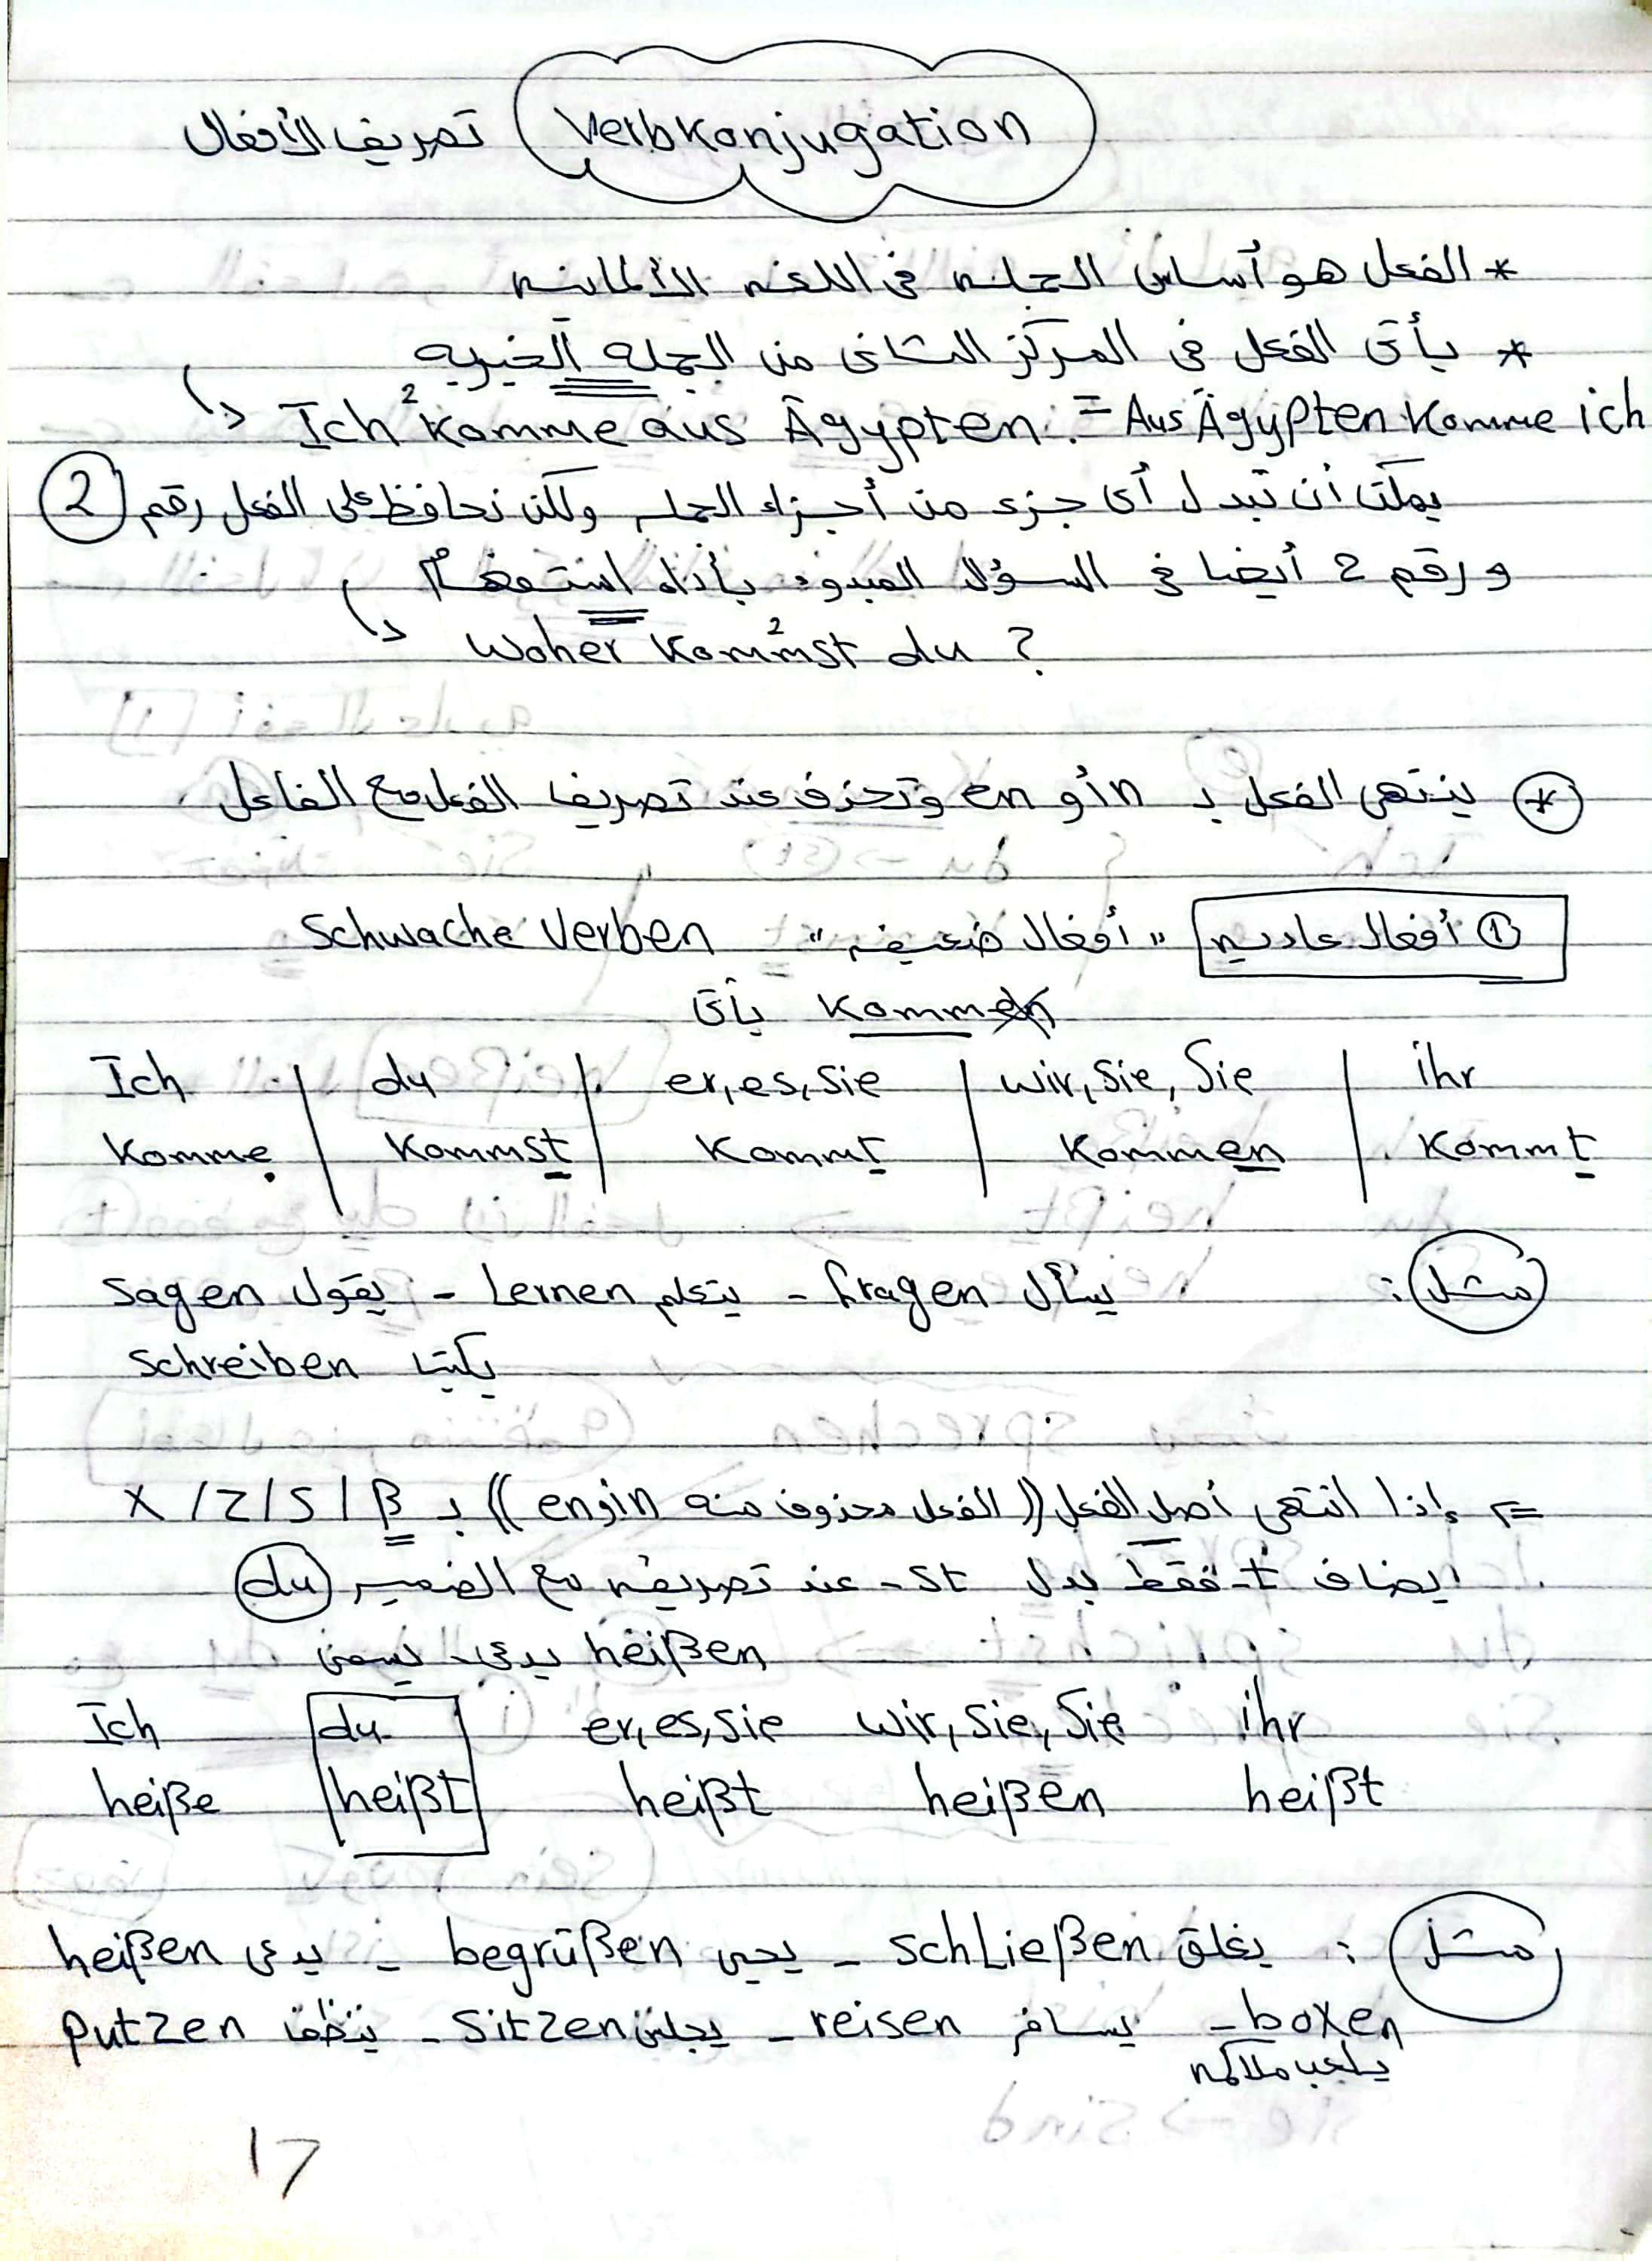 Verbkonjugation تصريف الأفعال
* الفعل هو أساس الجمله فى اللغه الألمانيه
* يأتى الفعل فى المركز الثانى من الجمله الخبريه
Ich komme² aus Ägypten. = Aus Ägypten komme ich
يمكن أن نبدل أى جزء من أجزاء الجمله ولكن نحافظ على الفعل رقم 2
و رقم 2 أيضا فى السؤال المبدوء بأداه استفهام
Woher kommst² du ?
* ينتهى الفعل بـ n أو en وتحذف عند تصريف الفعل مع الفاعل
① أفعال عاديه "أفعال ضعيفه" Schwache Verben
kommen يأتى
Ich | du | er, es, sie | wir, sie, Sie | ihr
komme | kommst | kommt | kommen | kommt
مثل : fragen يسأل - Lernen يتعلم - sagen يقول
schreiben يكتب
=> إذا انتهى أصل الفعل ((الفعل محذوف منه n او en)) بـ ß / s / z / x
يضاف t- فقط بدل st- عند تصريفه مع الضمير du
heißen يدعى - يسمى
Ich du er, es, sie wir, sie, Sie ihr
heiße heißt heißt heißen heißt
مثل : schLießen يغلق - begrüßen يحيى - heißen يدعى
- boxen reisen يسافر - sitzen يجلس - putzen ينظف
يلعب ملاكمه
17